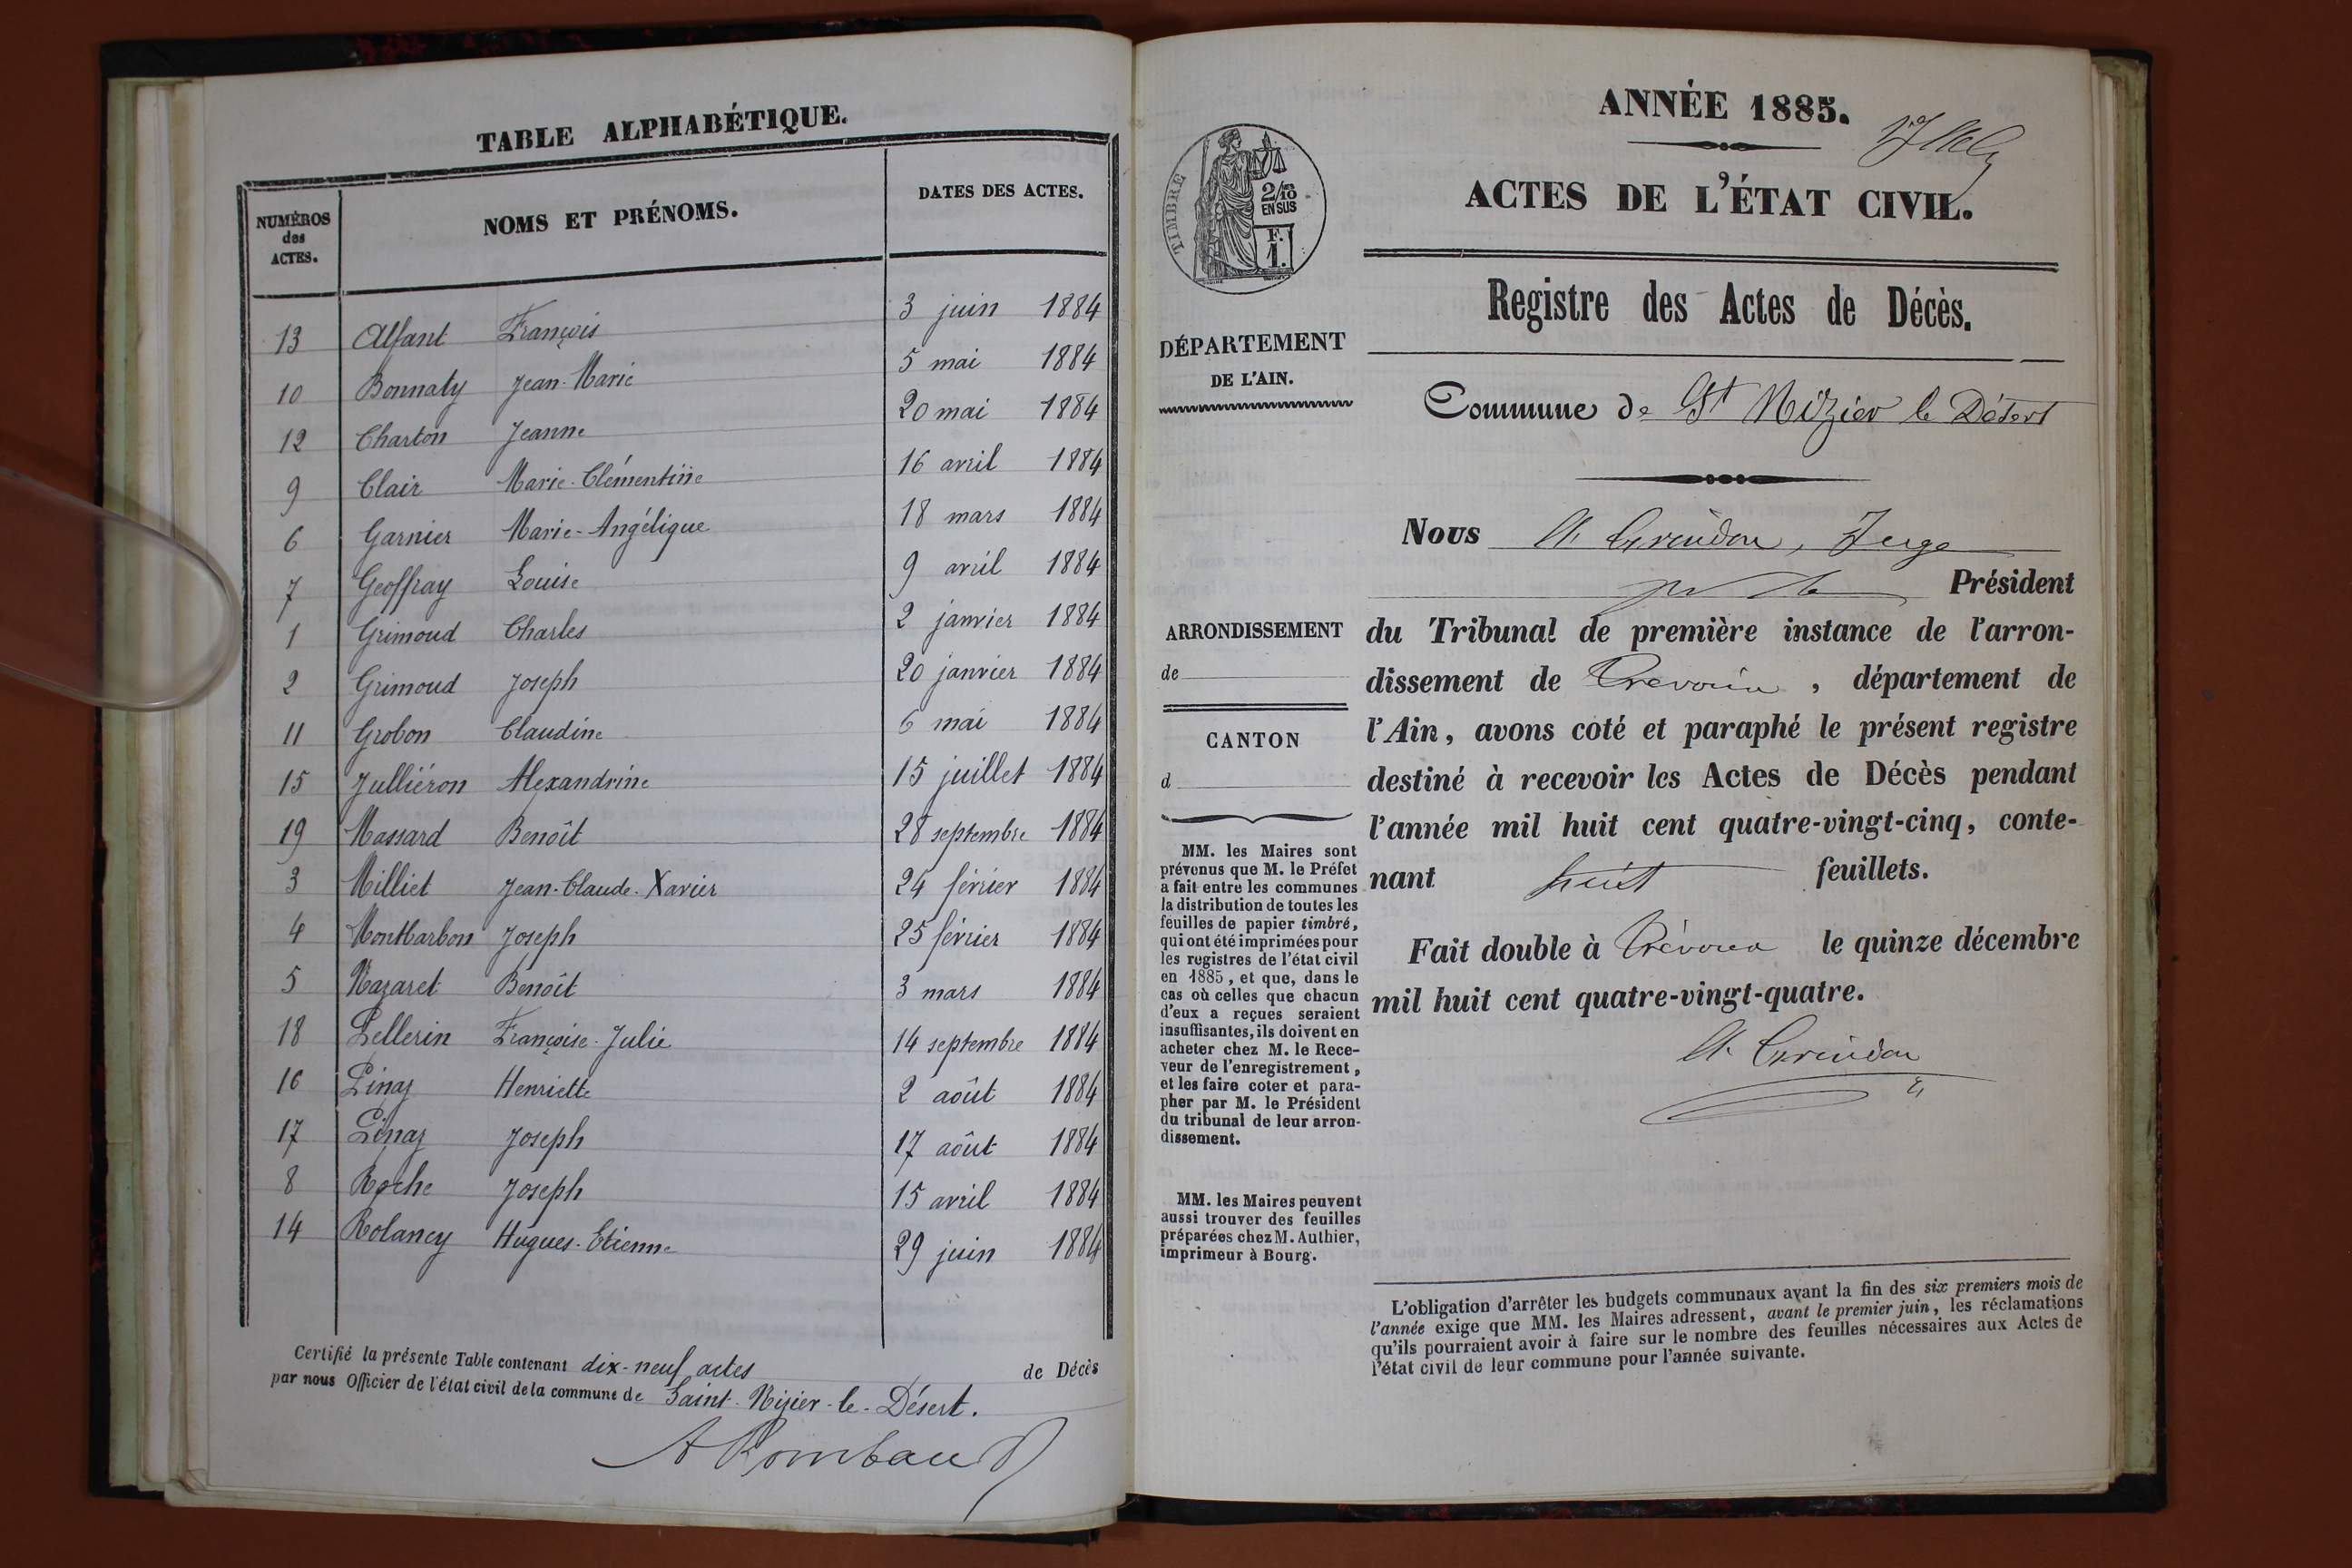 TABLE ALPHABÉTIQUE.
NUMÉROS des ACTES. NOMS ET PRÉNOMS. DATES DES ACTES.
13 Alfant François 3 juin 1884
10 Bonnaty Jean-Marie 5 mai 1884
12 Charton Jeanne 20 mai 1884
9 Clair Marie-Clémentine 16 avril 1884
6 Garnier Marie-Angélique 18 mars 1884
7 Geoffray Louise 9 avril 1884
1 Grimoud Charles 2 janvier 1884
2 Grimoud Joseph 20 janvier 1884
11 Grobon Claudine 6 mai 1884
15 Julliéron Alexandrine 15 juillet 1884
19 Massard Benoît 28 septembre 1884
3 Milliet Jean-Claude-Xavier 24 février 1884
4 Montbarbon Joseph 25 février 1884
5 Nazaret Benoît 3 mars 1884
18 Pellerin Françoise-Julie 14 septembre 1884
16 Pinaz Henriette 2 août 1884
17 Pinaz Joseph 17 août 1884
8 Roche Joseph 15 avril 1884
14 Rolancy Hugues-Etienne 29 juin 1884
Certifié la présente Table contenant dix-neuf actes de Décès
par nous Officier de l'état civil de la commune de Saint-Nizier-le-Désert.
A Rombaud
ANNÉE 1885.
ACTES DE L'ÉTAT CIVIL.
TIMBRE
2/10 EN SUS
F. 1.
Registre des Actes de Décès.
DÉPARTEMENT
DE L'AIN.
Commune de St Nizier le Désert
Nous Juge
Président
ARRONDISSEMENT
de
CANTON
d
du Tribunal de première instance de l'arron-
dissement de Trévoux, département de
l'Ain, avons coté et paraphé le présent registre
destiné à recevoir les Actes de Décès pendant
l'année mil huit cent quatre-vingt-cinq, conte-
nant huit feuillets.
Fait double à Trévoux le quinze décembre
mil huit cent quatre-vingt-quatre.
MM. les Maires sont
prévenus que M. le Préfet
a fait entre les communes
la distribution de toutes les
feuilles de papier timbré,
qui ont été imprimées pour
les registres de l'état civil
en 1885, et que, dans le
cas où celles que chacun
d'eux a reçues seraient
insuffisantes, ils doivent en
acheter chez M. le Rece-
veur de l'enregistrement,
et les faire coter et para-
pher par M. le Président
du tribunal de leur arron-
dissement.
MM. les Maires peuvent
aussi trouver des feuilles
préparées chez M. Authier,
imprimeur à Bourg.
L'obligation d'arrêter les budgets communaux avant la fin des six premiers mois de
l'année exige que MM. les Maires adressent, avant le premier juin, les réclamations
qu'ils pourraient avoir à faire sur le nombre des feuilles nécessaires aux Actes de
l'état civil de leur commune pour l'année suivante.